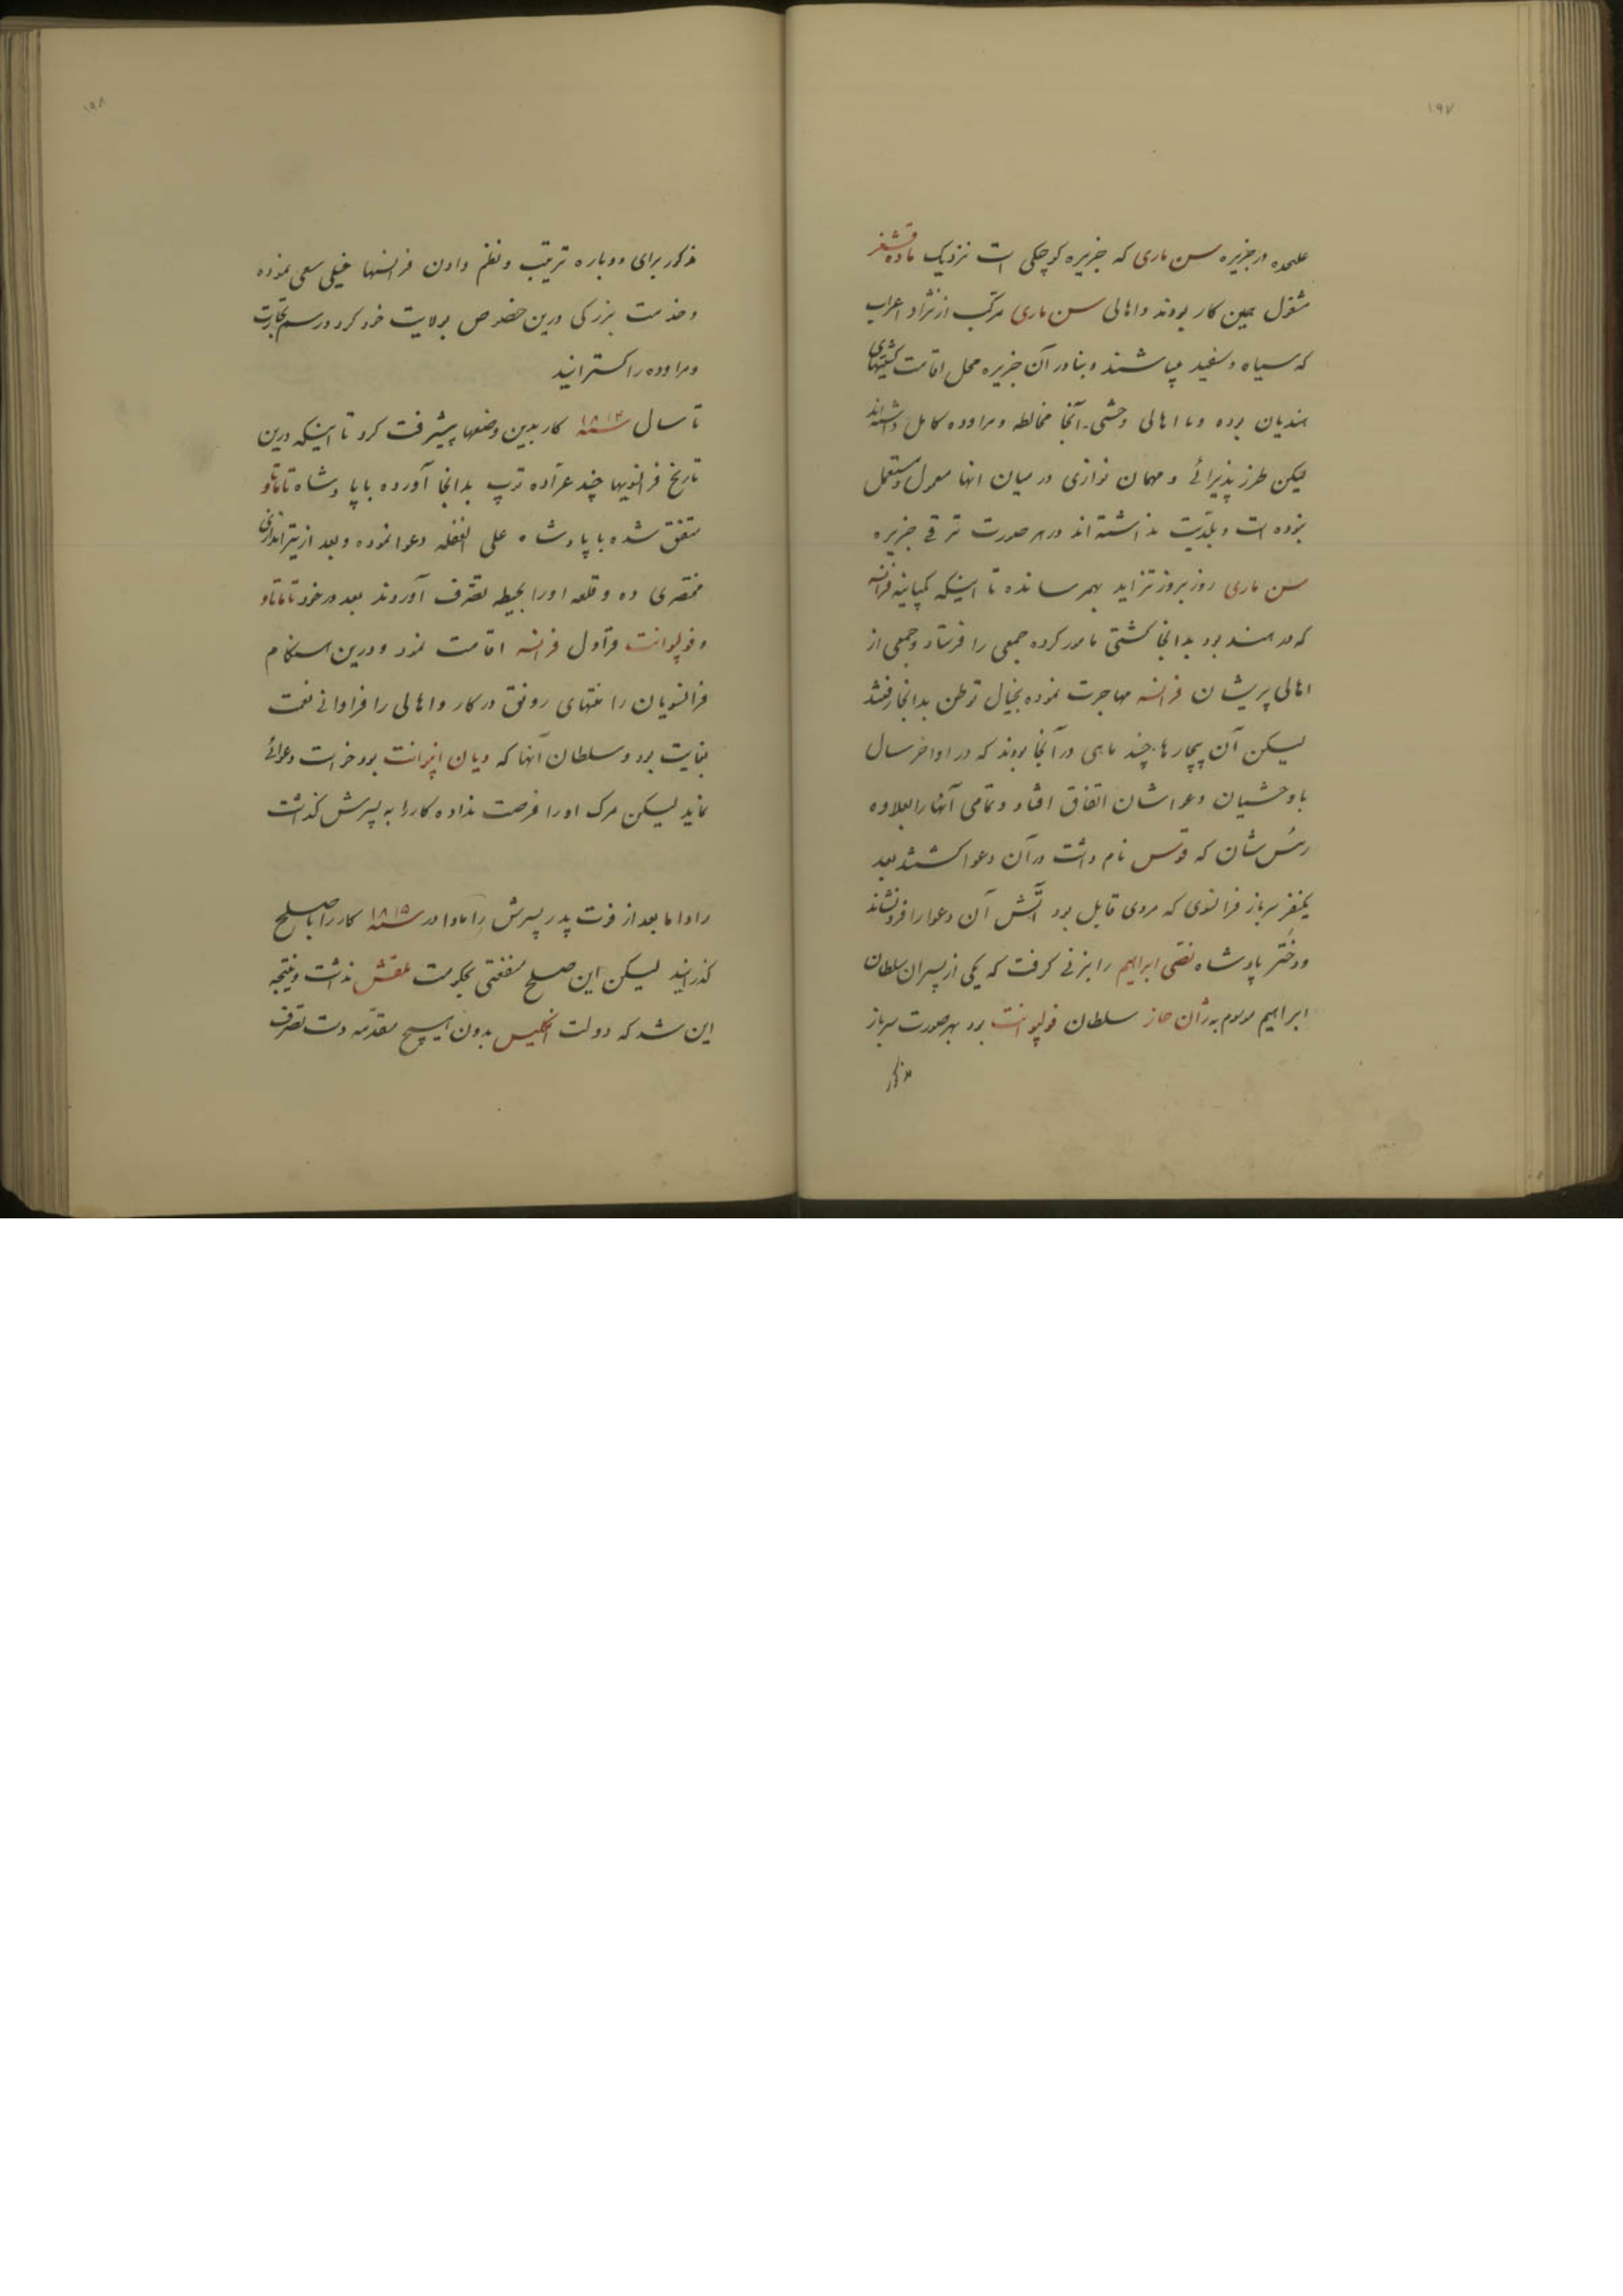 ۱۹۷
علیحده در جزیره سن ماری که جزیره کوچکی است نزدیک ماده قشقر
مشغول همین کار بودند و اهالی سن ماری مرکب از نژاد اعراب
که سیاه و سفید میباشند و بنادر آن جزیره محل اقامت کشتیهای
هندیان بوده و با اهالی وحشی آنجا مخالطه و مراوده کامل داشته‌اند
لیکن طرز پذیرائی و مهمان نوازی در میان انها معمول و مستعمل
نبوده است و بلدیت نداشته اند در هر صورت ترقی جزیره
سن ماری روز بروز تزاید بهمرسانده تا اینکه کمپانیه فرانسه
که در هند بود بدانجا کشتی مامور کرده جمعی را فرستاد و جمعی از
اهالی پریشان فرانسه مهاجرت نموده بخیال توطن بدانجا رفتند
لیکن آن بیچارها چند ماهی در آنجا بودند که در اواخر سال
با وحشیان دعواشان اتفاق افتاد و تمامی آنها را بعلاوه
رئیس‌شان که قوس نام داشت در آن دعوا کشتند بعد
یکنفر سرباز فرانسوی که مردی قابل بود آتش آن دعوا را فرونشاند
و دختر پادشاه نقی ابراهیم را بزنی گرفت که یکی از پسران سلطان
ابراهیم موسوم به ژان حاز سلطان فولپوانت بود بهر صورت سرباز
مذکور
۱۹۸
مذکور برای دوباره ترتیب و نظم دادن فرانسها خیلی سعی نموده
و خدمت بزرکی درین خصوص بولایت خود کرد و رسم تجارت
و مراوده را کسترانید
تا سال سنه ۱۸۱۲ کار بدین وضعها پیشرفت کرد تا اینکه درین
تاریخ فرانسویها چند عراده توپ بدانجا آورده با پادشاه تاماتاو
متفق شده با پادشاه علی الغفله دعوا نموده و بعد از تیراندازی
مختصری ده و قلعه اورا بحیطه تصرف آوردند بعد در خود تاماتاو
و فولپوانت قراول فرانسه اقامت نمود و درین هنکام
فرانسویان را منتهای رونق در کار و اهالی را فراوانی نعمت
بنهایت بود و سلطان آنها که دیان اپرانت بود خواست دعوائی
نماید لیکن مرک اورا فرصت نداده کار را به پسرش گذاشت
راداما بعد از فوت پدر پسرش راماداما در سنه ۱۸۱۵ کار را با صلح
گذرانید لیکن این صلح منفعتی بحکومت ملقش نداشت و نتیجه
این شد که دولت انکلیس بدون هیچ مقدمه دست تصرف